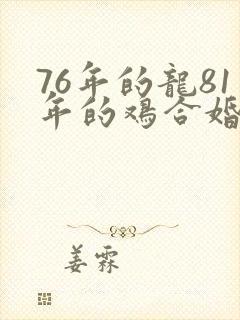 76年的龍81
年的鸡合婚
姜霖